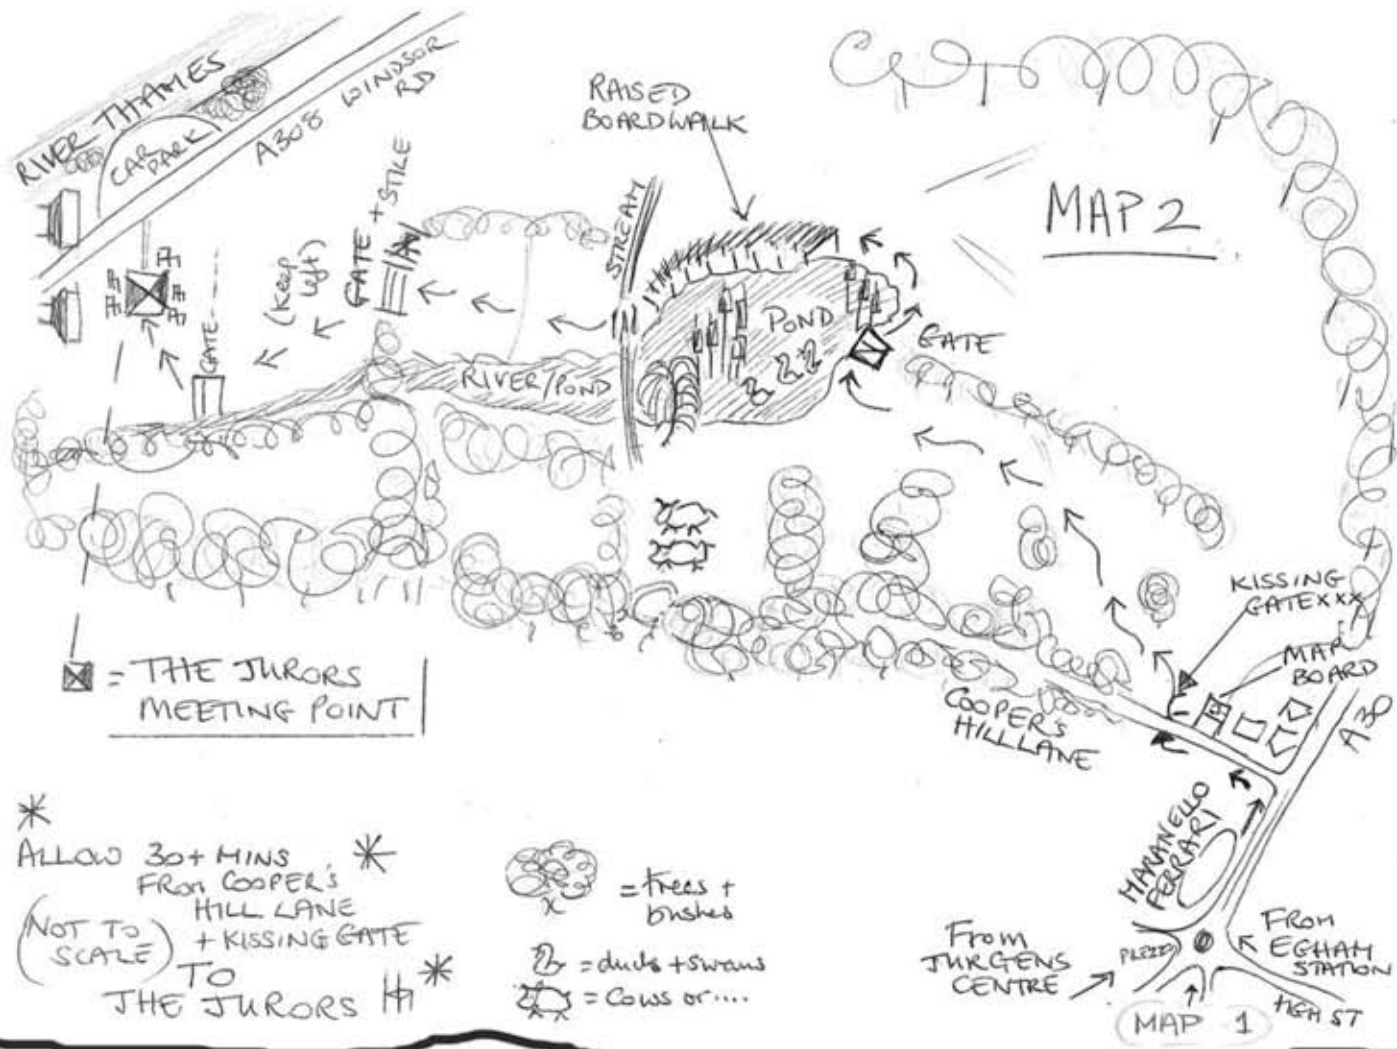 RIVER THAMES
CAR
PARK
A308 WINDSOR
RD
RAISED
BOARDWALK
MAP 2
STREAM
GATE + STILE
(Keep
left)
GATE
RIVER/POND
POND
GATE
KISSING
GATE XXX
MAP
BOARD
COOPER'S
HILL LANE
A30
MARANELLO
FERRARI
= THE JURORS
MEETING POINT
*
ALLOW 30+ MINS *
FROM COOPER'S
HILL LANE
+ KISSING GATE
(NOT TO
SCALE)
TO
THE JURORS *
= trees +
bushes
= ducks + swans
= Cows or....
From
JURGENS
CENTRE
FROM
EGHAM
STATION
HIGH ST
MAP 1